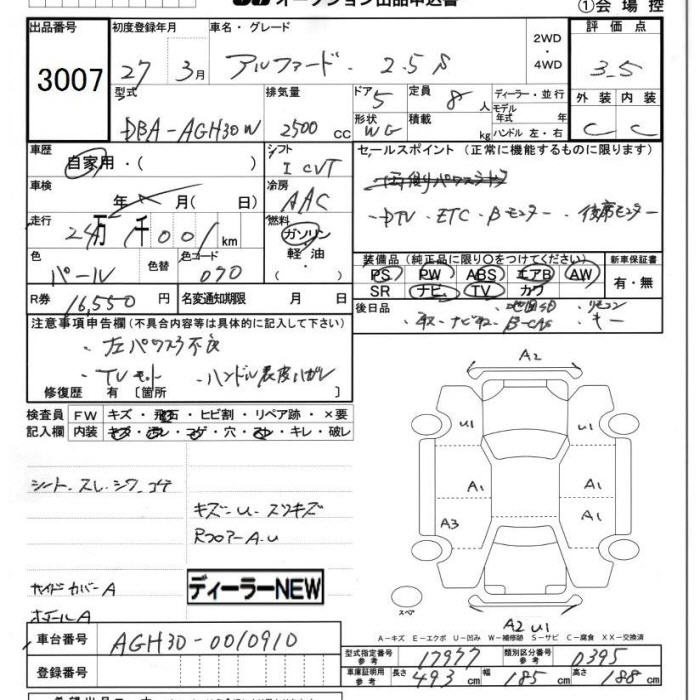 オークション出品申込書
①会場控
出品番号
3007
初度登録年月
27 3月
車名・グレード
アルファード・2.5S
2WD
・
4WD
評価点
3.5
外装 内装
C C
型式
DBA-AGH30W
排気量
2500 cc
ドア
5
形状
WG
定員
8 人
積載
kg
ディーラー・並行
モデル
年式 年
ハンドル 左・右
車歴
自家用・( )
シフト
I CVT
車検
年 月( 日)
冷房
AAC
走行
24万1千001km
燃料
ガソリン
・
軽油
・
( )
色
パール
色替
色コード
070
R券 16,550 円
名変通知期限 月 日
セールスポイント(正常に機能するものに限ります)
両側パワスラ
・DTV・ETC・Bモニター・後席モニター
装備品(純正品に限り〇をつけてください)
PS PW ABS エアB AW
SR ナビ TV カワ
新車保証書
有・無
後日品
・地図SD ・リモコン
・取・ナビ取・B-CAS・キー
注意事項申告欄(不具合内容等は具体的に記入して下さい)
・左パワスラ不良
・TVモット ・ハンドル表皮ハガレ
修復歴 有〔箇所 〕
検査員 FW キズ・飛石・ヒビ割・リペア跡・×要
記入欄 内装 キズ・汚レ・コゲ・穴・スレ・キレ・破レ
シート・スレ・シワ・コゲ
キズ-U-スリキズ
RフロアーA.U
サイドカバーA
ホイールA
ディーラーNEW
A2
U1 U1
A1 A1
A3 A1
スペア
A2 U1
A-キズ E-エクボ U-凹み W-補修跡 S-サビ C-腐食 XX-交換済
車台番号 AGH30-0010910
登録番号
型式指定番号
参考
17977
類別区分番号
参考
0395
車庫証明用
参考
長さ 493 cm 幅 185 cm 高さ 188 cm